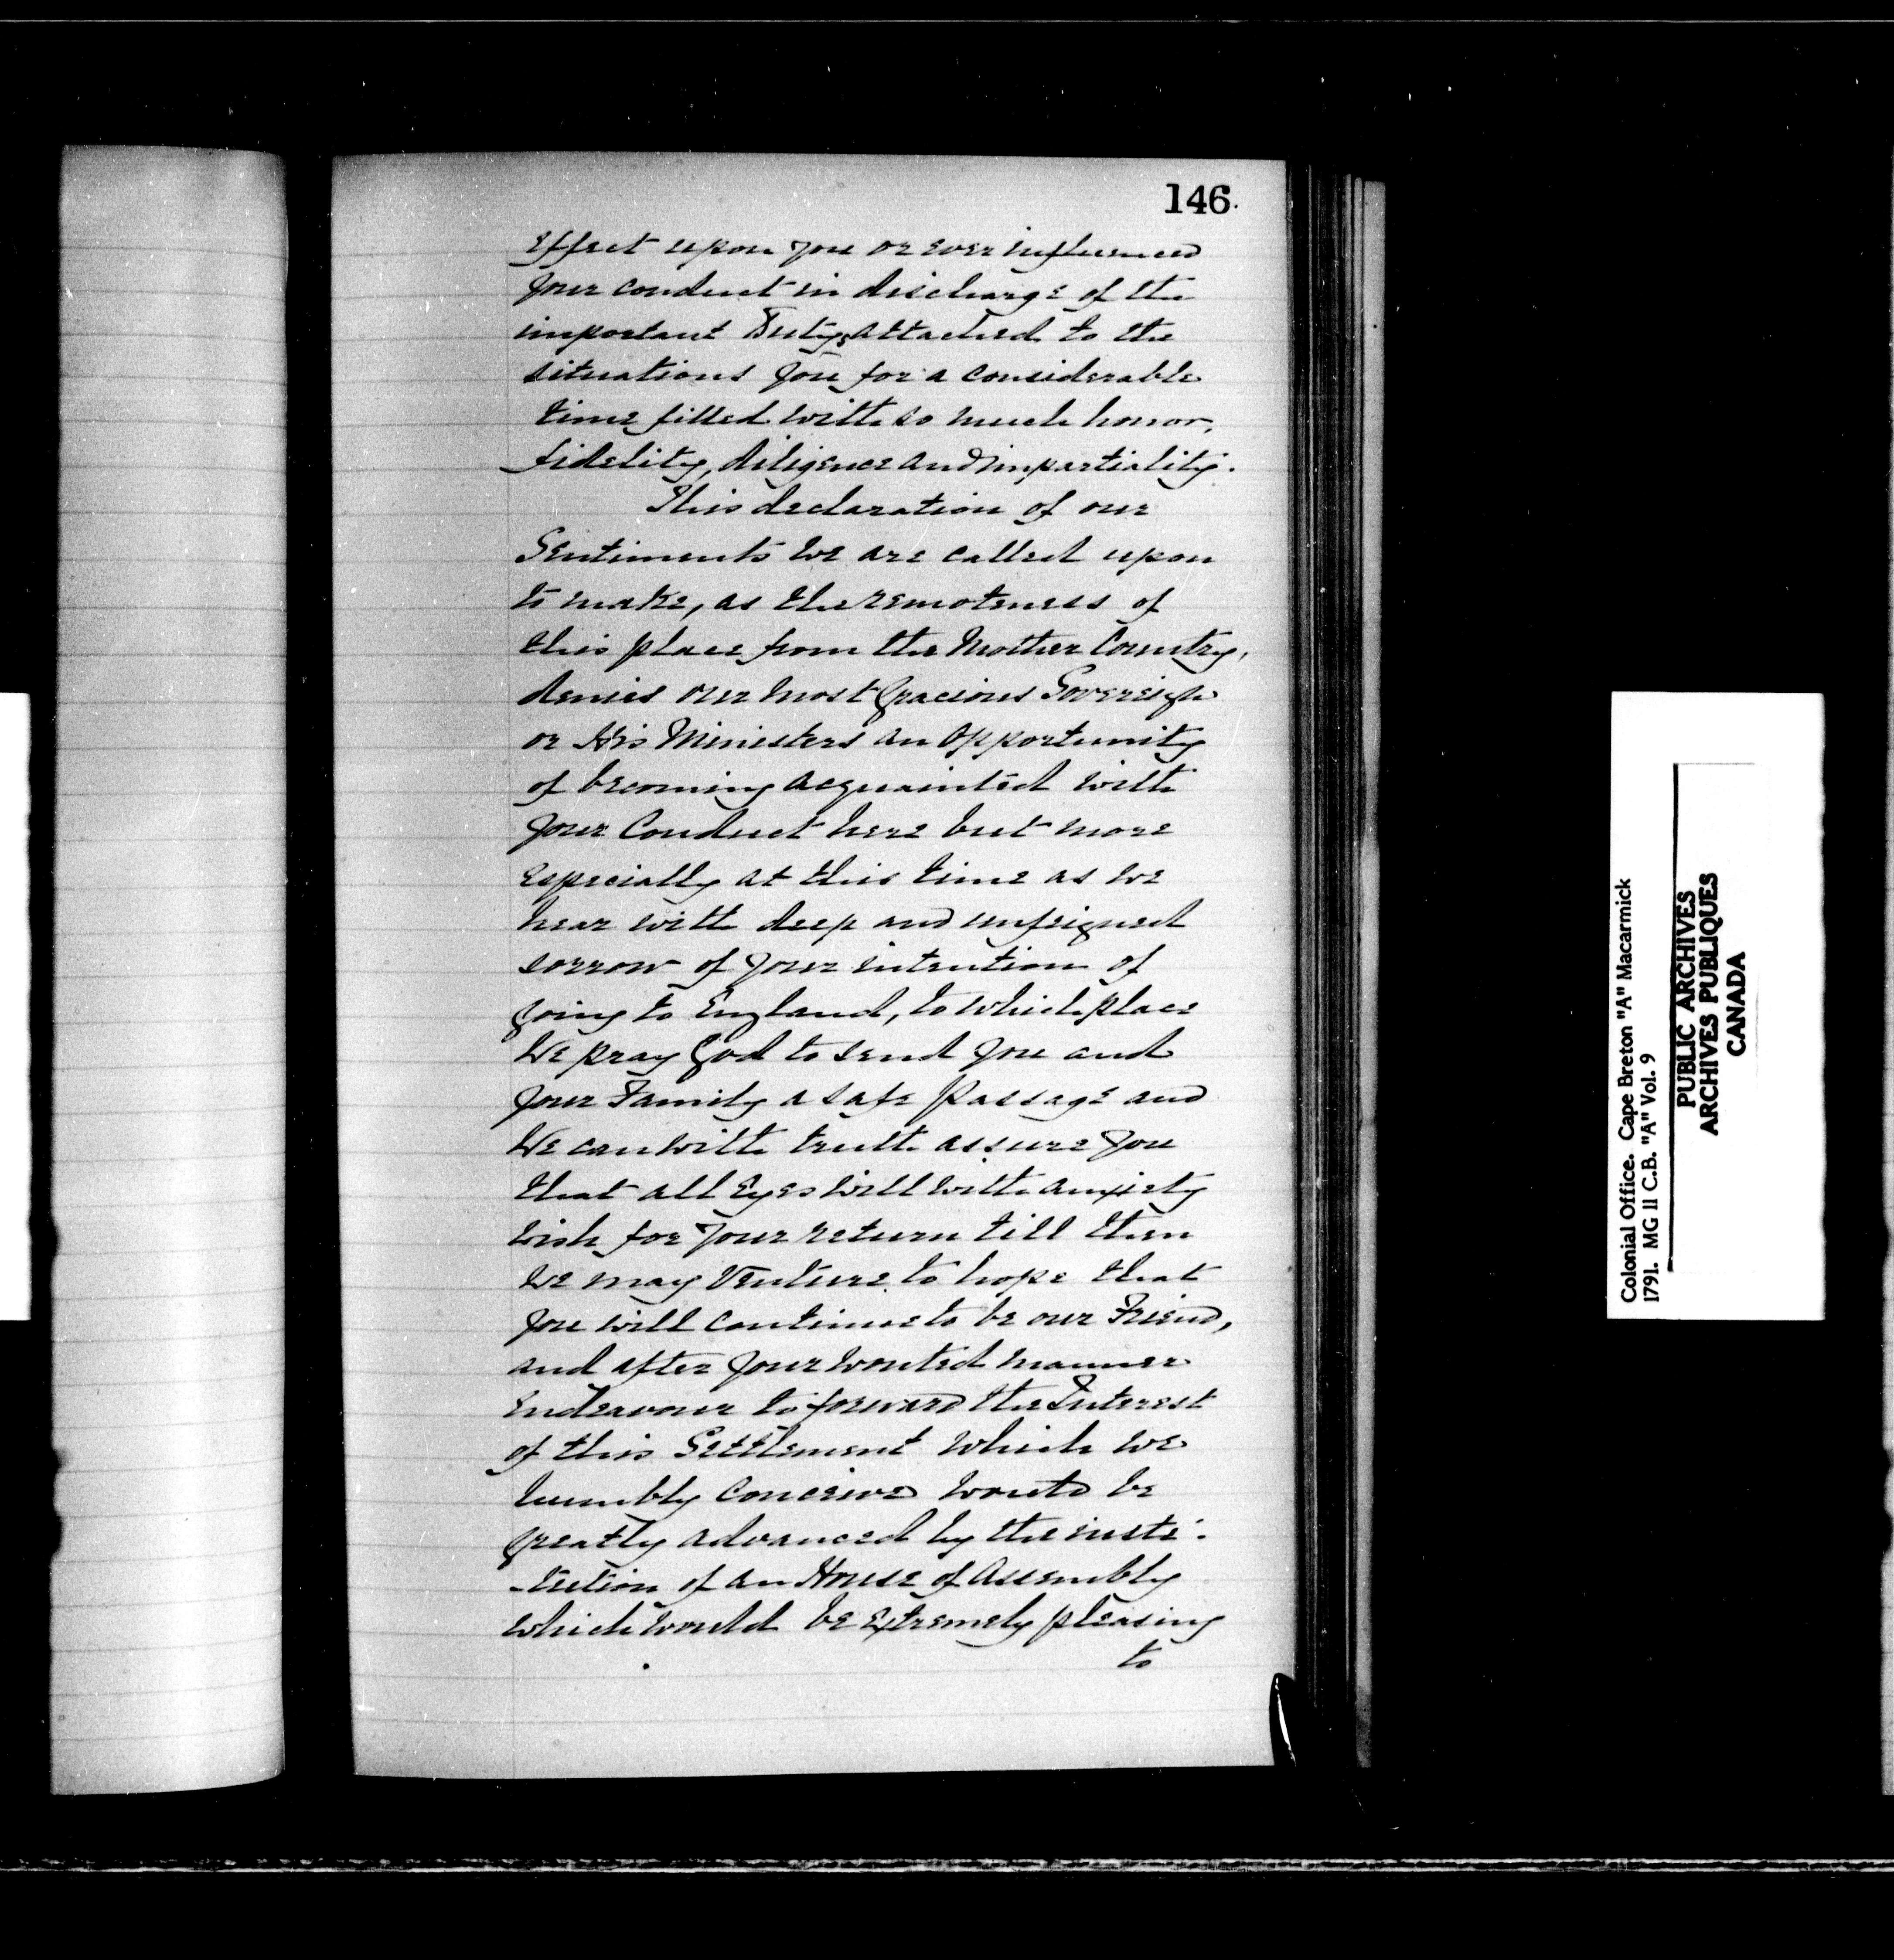 146.
Effect upon you or ever influenced
your conduct in discharge of the
important Dutys attached to the
situations you for a considerable
time filled with so much honor,
fidelity, diligence and impartiality.
This declaration of our
Sentiments we are called upon
to make, as the remoteness of
this place from the Mother Country,
denies our most Gracious Sovereign
or His Ministers an Opportunity
of becoming acquainted with
your Conduct here but more
Especially at this time as we
hear with deep and unfeigned
sorrow of your intention of
going to England, to which place
We pray God to send you and
your Family a safe Passage and
We can with truth assure you
that all Eyes will with anxiety
wish for your return till then
we may Venture to hope that
you will continue to be our Friend,
and after your wonted manner
Endeavour to forward the Interest
of this Settlement which we
humbly Conceive would be
greatly advanced by the insti-
-tution of an House of Assembly
which would be Extremely pleasing
to
Colonial Office. Cape Breton "A" Macarmick
1791. MG 11 C.B. "A" Vol. 9
PUBLIC ARCHIVES
ARCHIVES PUBLIQUES
CANADA